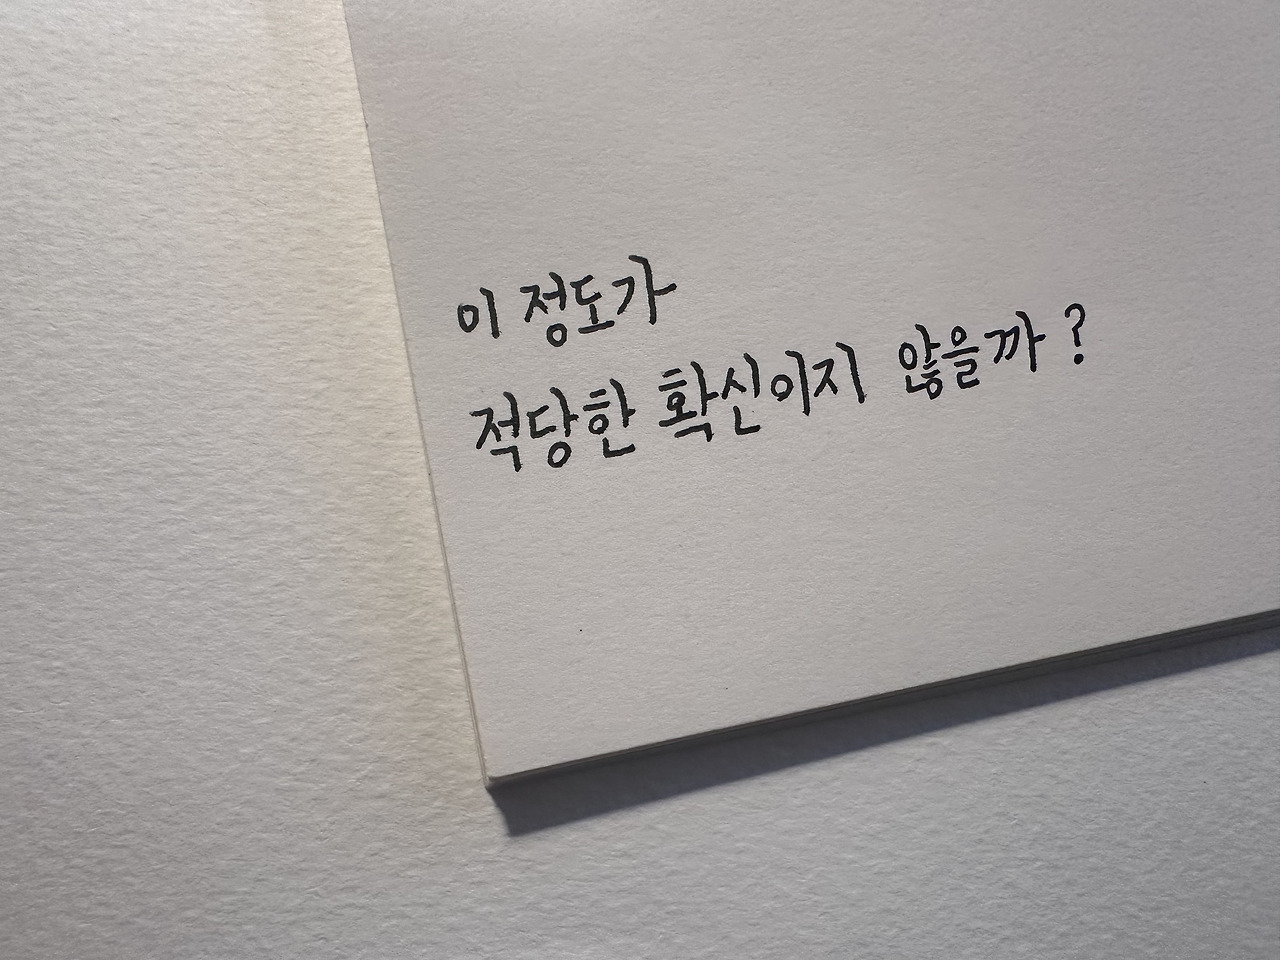 이 정도가
적당한 확신이지 않을까?